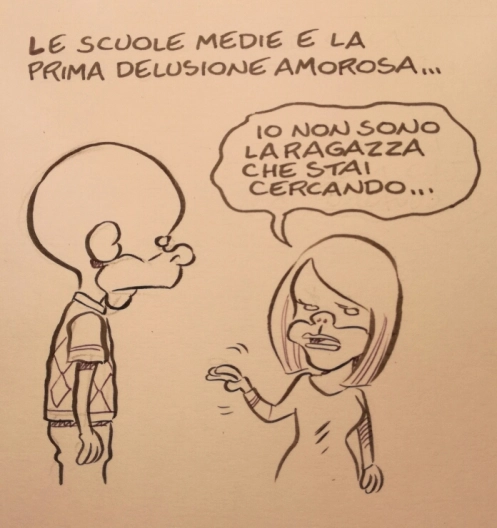 LE SCUOLE MEDIE E LA
PRIMA DELUSIONE AMOROSA...
IO NON SONO
LA RAGAZZA
CHE STAI
CERCANDO...